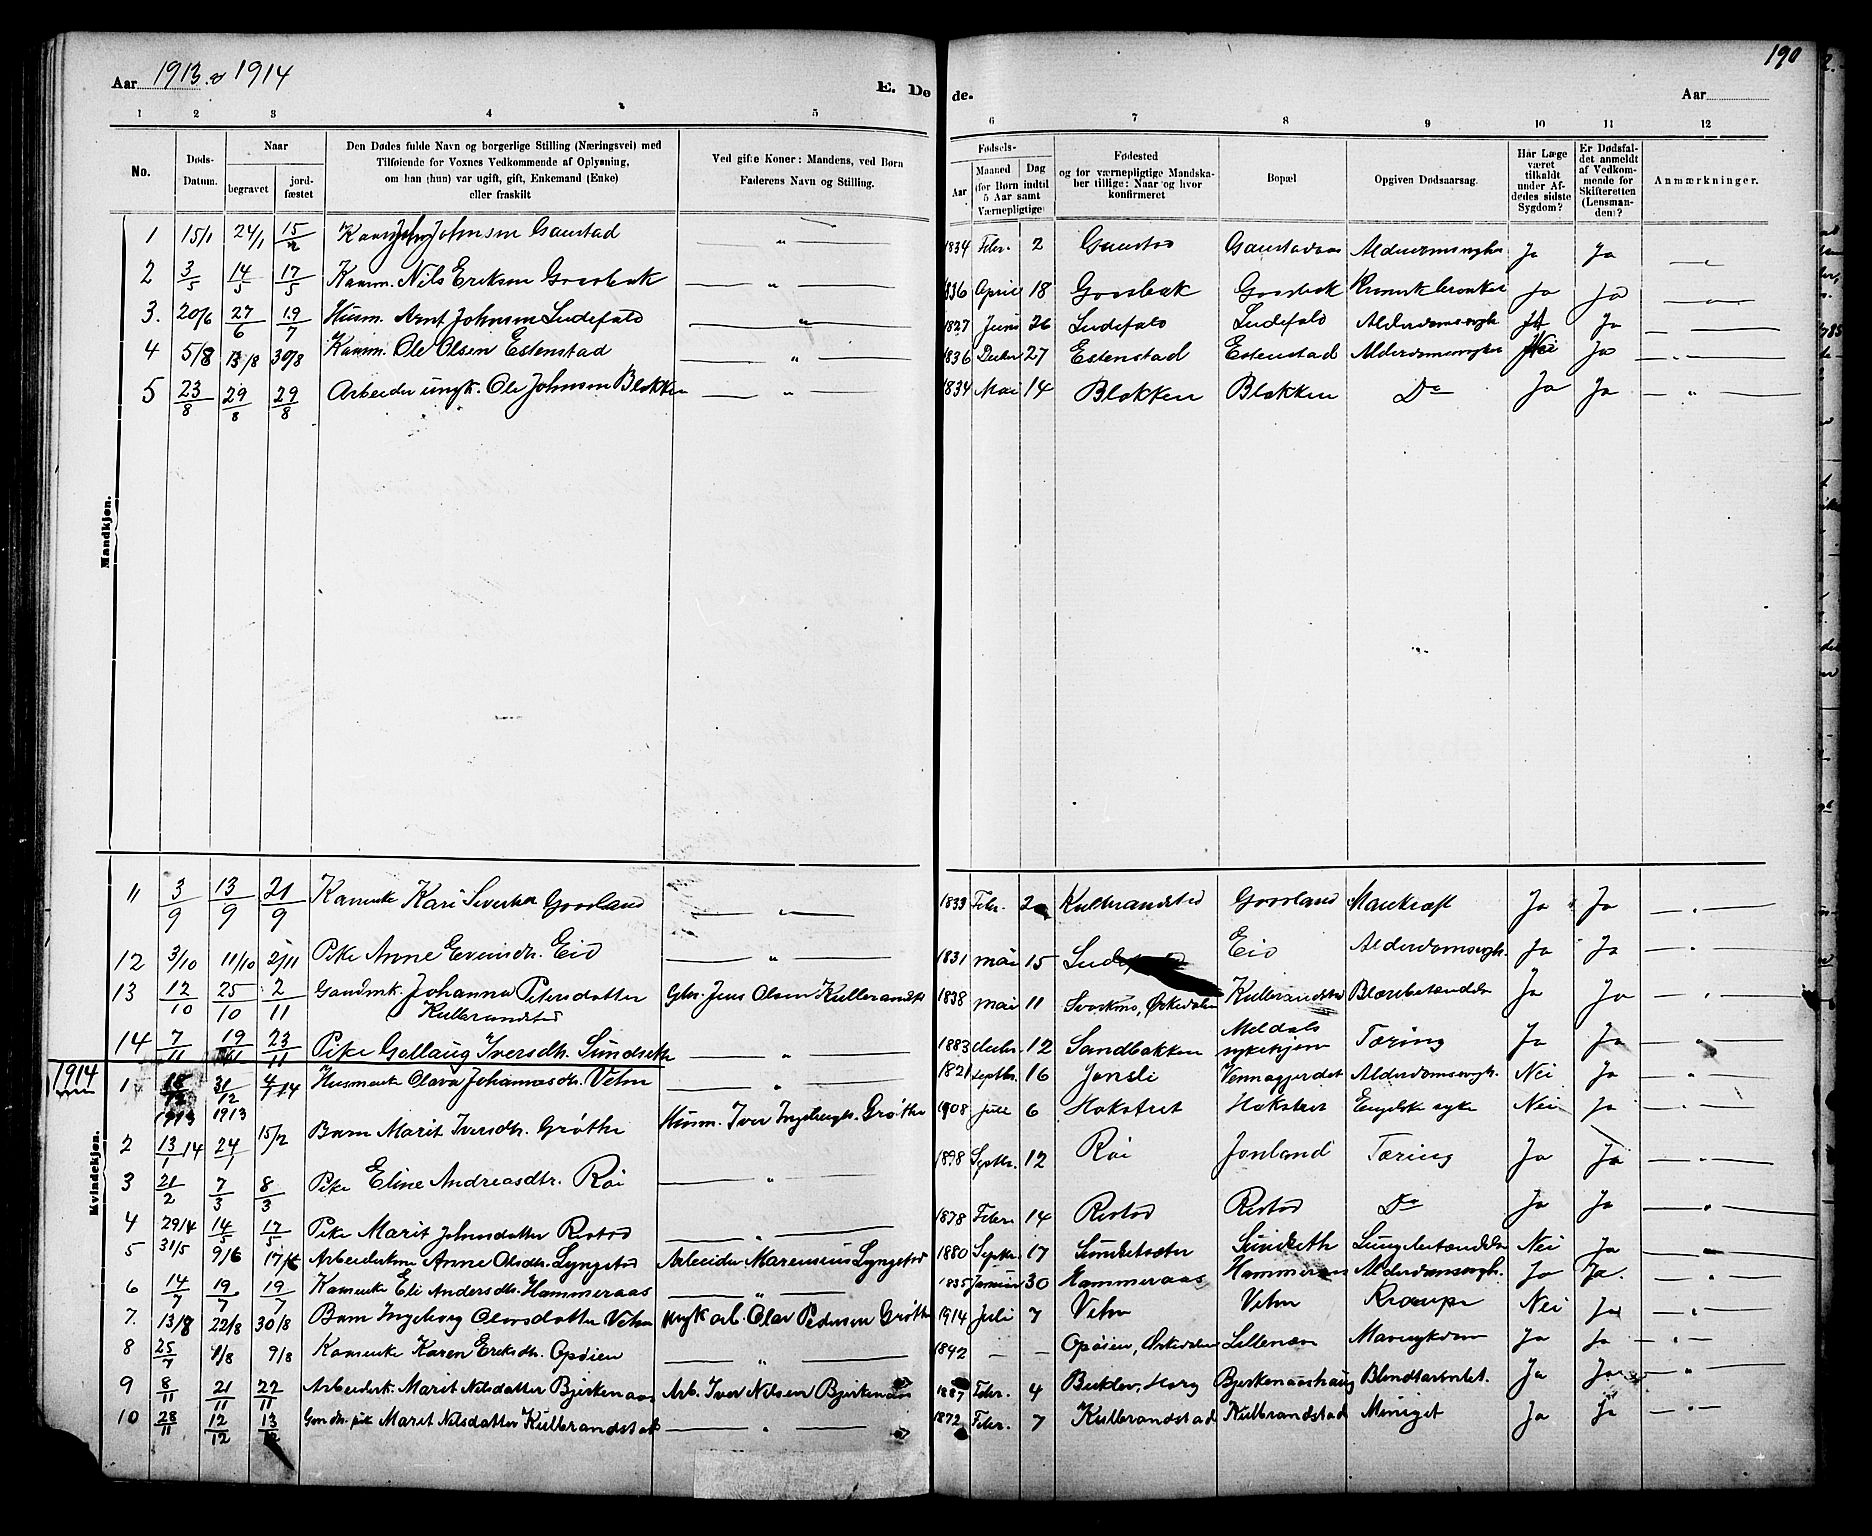 190
Aar 1913 & 1914
E. Dø de.
Aar
1 2 3 4 5 6 7 8 9 10 11 12
No.
Døds-Datum.
Naar
begravet
jordfæstet
Den Dødes fulde Navn og borgerlige Stilling (Næringsvei) med
Tilføiende for Voxnes Vedkommende af Oplysning,
om han (hun) var ugift, gift, Enkemand (Enke)
eller fraskilt
Ved gifte Koner: Mandens, ved Børn
Faderens Navn og Stilling.
Fødsels-
Aar
Maaned
Dag
(for Børn indtil
5 Aar samt
Værnepligtige)
Fødested
og for værnepligtige Mandska-
ber tillige: Naar og hvor
konfirmeret
Bopæl
Opgiven Dødsaarsag.
Har Læge
været
tilkaldt
under Af-
dødes sidste
Sygdom?
Er Dødsfal-
det anmeldt
af Vedkom-
mende for
Skifteretten
(Lensman-
den)?
Anmærkninger.
Mandkjøn.
1 15/1 24/1 15/2 John Johnsen Gaustad — " — 1834 Febr. 2 Gaustad Ja Ja — " —
2 3/5 14/5 17/5 Kaarm. Nils Eriksen Goosbak — " — 1836 April 18 Goosbak Goosbak Ja Ja — " —
3. 20/6 27/6 19/7 Husm. Arnt Johnsen Ludefald — " — 1827 Juni 26 Ludefald Ludefald Ja — " —
4 5/8 13/8 30/8 Kaarm. Ole Olsen Estenstad — " — 1836 Decbr 27 Estenstad Estenstad Nei Ja — " —
5 23/8 29/8 29/8 Arbeider ungk. Ole Johnsen Blokken — " — 1834 Mai 14 Blokken Blokken Do Ja Ja — " —
Kvindekjøn.
11 3/9 13/9 21/9 Kari Goosland — " — 1833 Febr. Kulbrandstad Goosland Ja Ja — " —
12 3/10 11/10 2/11 Pike Anne Evensdtr. Eid — " — 1831 Mai 15 Eid Alderdomssvagh. Ja Ja — " —
13 12/10 25/10 2/11 Gaardmk. Johanna Petersdatter
Kulbrandstad
Gbr. Jens Olsen Kulbrandstd 1838 Mai 11 Orkedalen Kulbrandstd Ja Ja — " —
14 7/11 19/11 23/11 Pike Gollaug Iversdtr. Sundseth — " — 1883 decbr. 12 Sandbakken Meldals
sykehjem Tæring Ja Ja — " —
1914
1 31/12 1913 Olava Johannesdtr. Vehn — " — 1821 Septbr. 16 Jonsli Vennagjerdet Alderdomssvagh. Nei Ja "
2 13/1 14 24/1 15/2 Barn Marit Iversdtr. Grøthe Husm. Iver Grøthe 1908 Juli 6 Hokstret Hokstret Engelsk syke Nei Ja — " —
3 21/2 7/3 8/3 Pike Eline Andreasdtr. Røi — 1898 Septbr. 12 Røi Jonland Tæring Ja Ja — " —
4 29/4 14/5 17/5 Pike Marit Johnsdatter Restad — " — 1878 Febr 14 Restad Restad Do Ja Ja "
5 31/5 9/6 Arbeiderkone Anne Olsdtr. Lyngstad Arbeider Marensius Lyngstad 1880 Septbr. 17 Sundseth Nei Ja "
6 14/7 19/7 19/7 Eli Andersdtr. Hammeraas — " — 1835 Januar 30 Hammeraas Hammeraas Alderdomssvagh. Ja Ja. "
7. 13/8 22/8 30/8 Barn Ingeborg Olavsdatter Vehn Ungk. arb. Olav Pedersen Grøthe 1914 Juli 7 Vehn Vehn Krampe Nei Ja "
8 25/7 1/8 9/8 Karen Eriksdtr. Opøien — " — 1842 — — Opøien, Orkedalen Ja Ja — " —
9 8/11 21/11 22/11 Arbeiderk. Marit Nilsdatter Bjerkenaas Arb. Iver Nilsen Bjerkenaas 1887 Febr. 4 Horg Bjerkenaashaug Ja Ja — " —
10 28/11 12/12 13/12 Marit Nilsdatter Kulbrandstad — " — 1872 Febr. 7 Kulbrandstad Kulbrandstad Ja Ja — " —